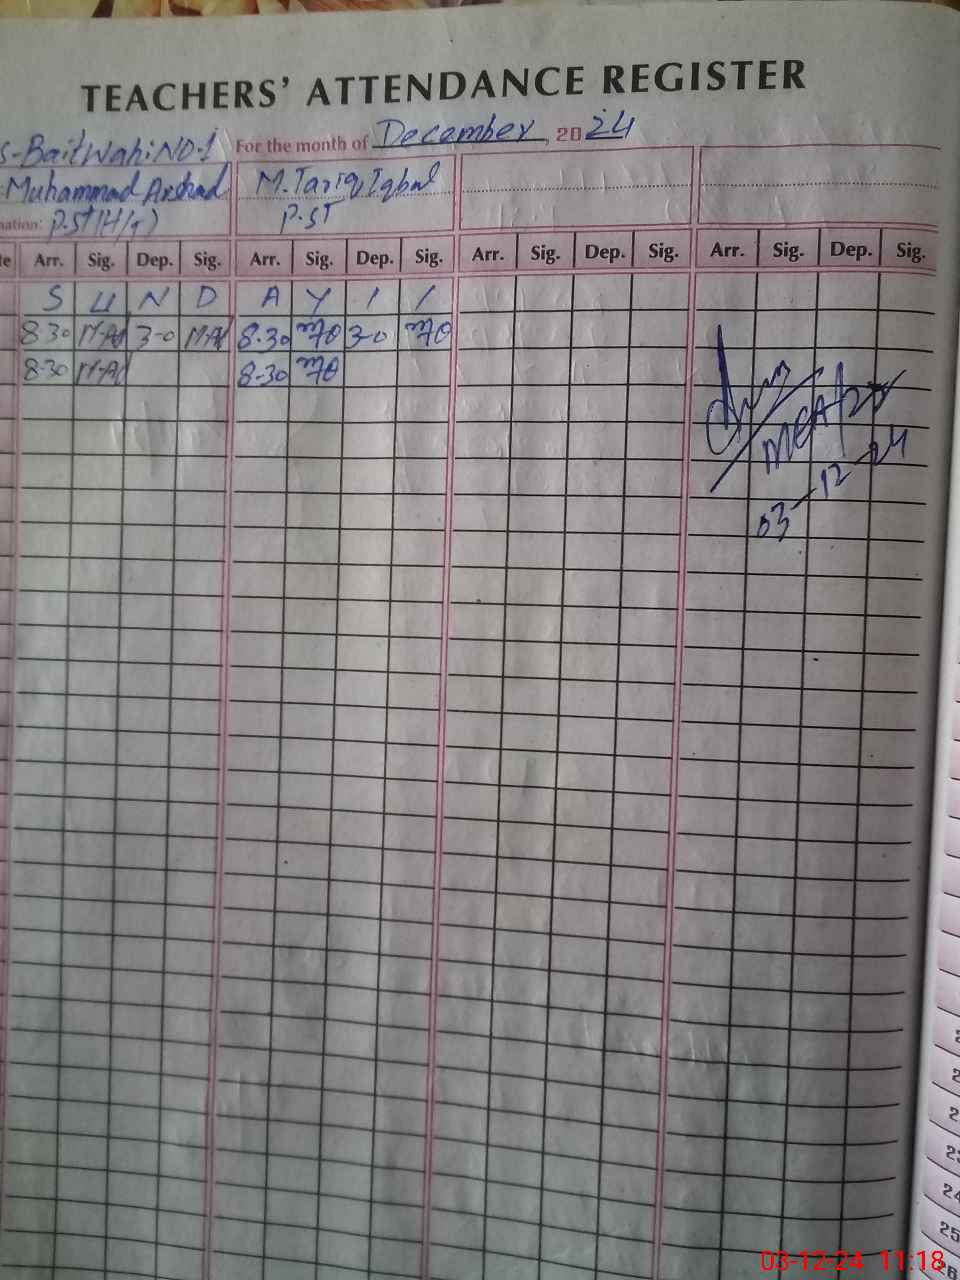 TEACHERS' ATTENDANCE REGISTER
S-BaitWahi NO-1 For the month of December, 2024
Muhammad Arshad M. Tariq Iqbal
nation: P.ST (H/T) P.ST
te Arr. Sig. Dep. Sig. Arr. Sig. Dep. Sig. Arr. Sig. Dep. Sig. Arr. Sig. Dep. Sig.
S U N D A Y / /
8-30 M-A 3-0 M-A 8-30 3-0
8-30 M-A 8-30
03-12-24
2
2
2
23
24
25
26
03-12-24 11:18